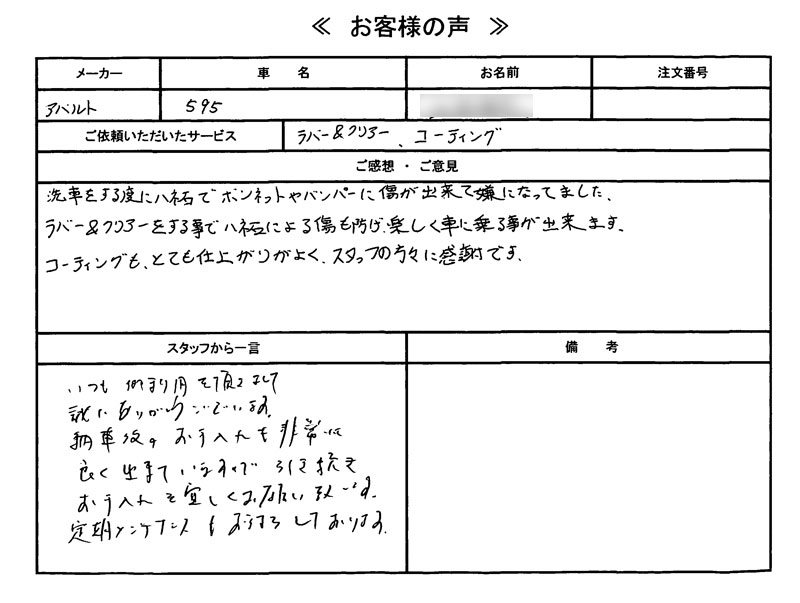 ≪ お客様の声 ≫
メーカー 車 名 お名前 注文番号
アバルト 595
ご依頼いただいたサービス ラバー&クリアー、コーティング
ご感想・ご意見
洗車をする度にハネ石でボンネットやバンパーに傷が出来て嫌になってました。
ラバー&クリアーをする事でハネ石による傷も防げ、楽しく車に乗る事が出来ます。
コーティングも、とても仕上がりがよく、スタッフの方々に感謝です。
スタッフから一言 備 考
いつも御利用を頂きまして
誠にありがとうございます。
納車後のお手入れも非常に
良く出来ていますので引き続き
お手入れを宜しくお願い致します。
定期メンテナンスもお待ちしております。